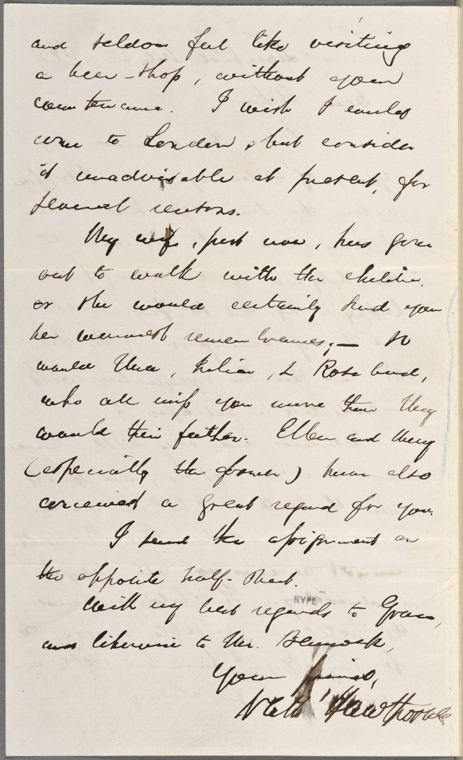 and seldom feel like visiting
a beer-shop, without your
countenance. I wish I could
come to London, but consider
it unadvisable at present, for
several reasons.
My wife, just now, has gone
out to walk with the children,
or she would certainly send you
her warmest remembrances; — so
would Una, Julian, & Rosebud,
who all miss you more than they
would their father. Ellen and Mary
(especially the former) have also
conceived a great regard for you.
I send the assignment on
the opposite half-sheet.
NYPL
With my best regards to
and likewise to Mr. Bennoch,
Your friend,
Nath Hawthorne